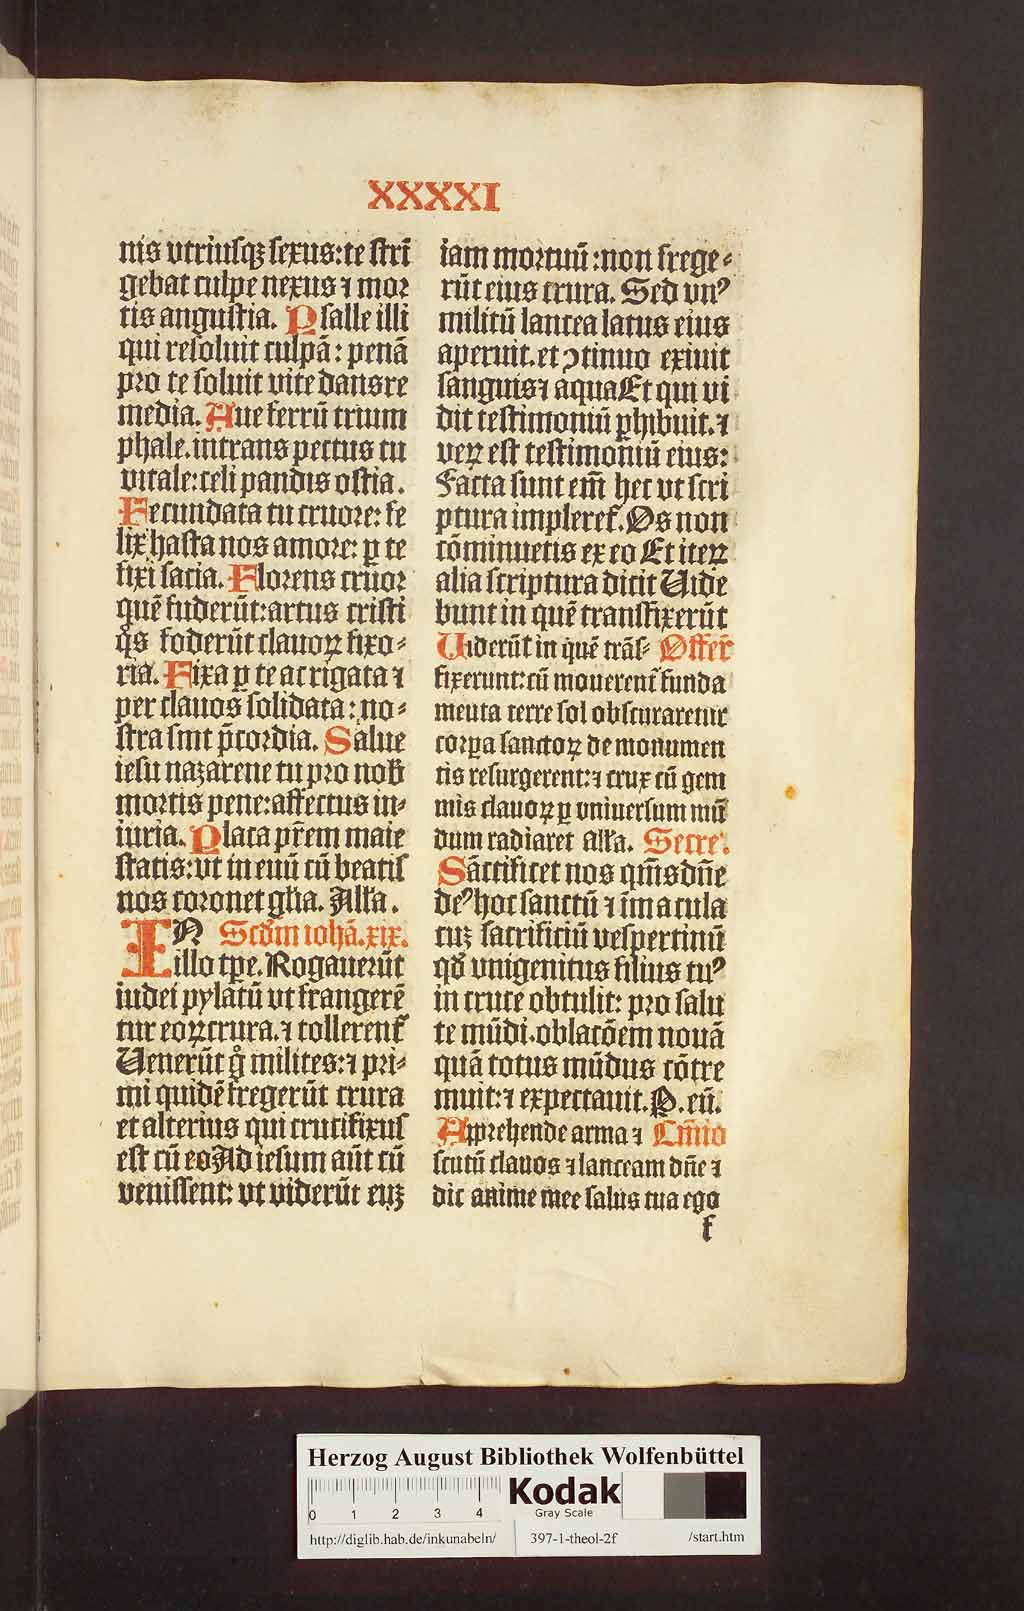 XXXXI
nis vtriusqʒ sexus: te strī
gebat culpe nexus ⁊ mor
tis angustia. Psalle illi
qui resoluit culpā: penā
pro te soluit vite dans re
media. Aue ferrū trium
phale. intrans pectus tu
vitale: celi pandis ostia.
Fecundata tu cruore: fe
lix hasta nos amore: ꝑ te
fixi sacia. Florens cruor
quē fuderūt: artus cristi
qͦs foderūt clauoꝝ fixo⸗
ria. Fixa ꝑ te ac rigata ⁊
per clauos solidata: no⸗
stra sint p̄cordia. Salue
iesu nazarene tu pro nob̄
mortis pene: affectus in⸗
iuria. Placa pr̄em maie
statis: vt in euū cū beatis
nos coronet gl̄ia. Al̄la.
IN Scd̄m iohā. xix.
illo tp̄e. Rogauerūt
iudei pylatū vt frangerē
tur eoꝝ crura. ⁊ tollerent᷑
Uenerūt gͦ milites: ⁊ pri⸗
mi quidē fregerūt crura
et alterius qui crucifixus
est cū eo Ad iesum aūt cū
venissent: vt viderūt euʒ
iam mortuū: non frege⸗
rūt eius crura. Sed vnꝰ
militū lancea latus eius
aperuit. et ꝯtinuo exiuit
sanguis ⁊ aqua Et qui vi
dit testimoniū ꝑhibuit. ⁊
veꝝ est testimoniū eius:
Facta sunt em̄ hec vt scri
ptura impleret᷑. Os non
cōminuetis ex eo Et iteꝝ
alia scriptura dicit Uide
bunt in quē transfixerūt
Uiderūt in quē trās⸗ Offer̄
fixerunt: cū mouerent᷑ funda
menta terre sol obscuraretur
corpa sanctoꝝ de monumen
tis resurgerent: ⁊ crux cū gem
mis clauoꝝ ꝑ vniuersum mū
dum radiaret Al̄la. Secreͭ.
Sāctificet nos qm̄s dn̄e
deꝰ hoc sanctū ⁊ īmacula
tuʒ sacrificiū vespertinū
qd̄ vnigenitus filius tuꝰ
in cruce obtulit: pro salu
te mūdi. oblacōem nouā
quā totus mūdus cōtre
muit: ⁊ expectauit. P. eū.
Apprehende arma ⁊ Cm̄io
scutū clauos ⁊ lanceam dn̄e ⁊
dic anime mee salus tua ego
f
Herzog August Bibliothek Wolfenbüttel
0 1 2 3 4
Kodak
Gray Scale
http://diglib.hab.de/inkunabeln/ 397-1-theol-2f /start.htm